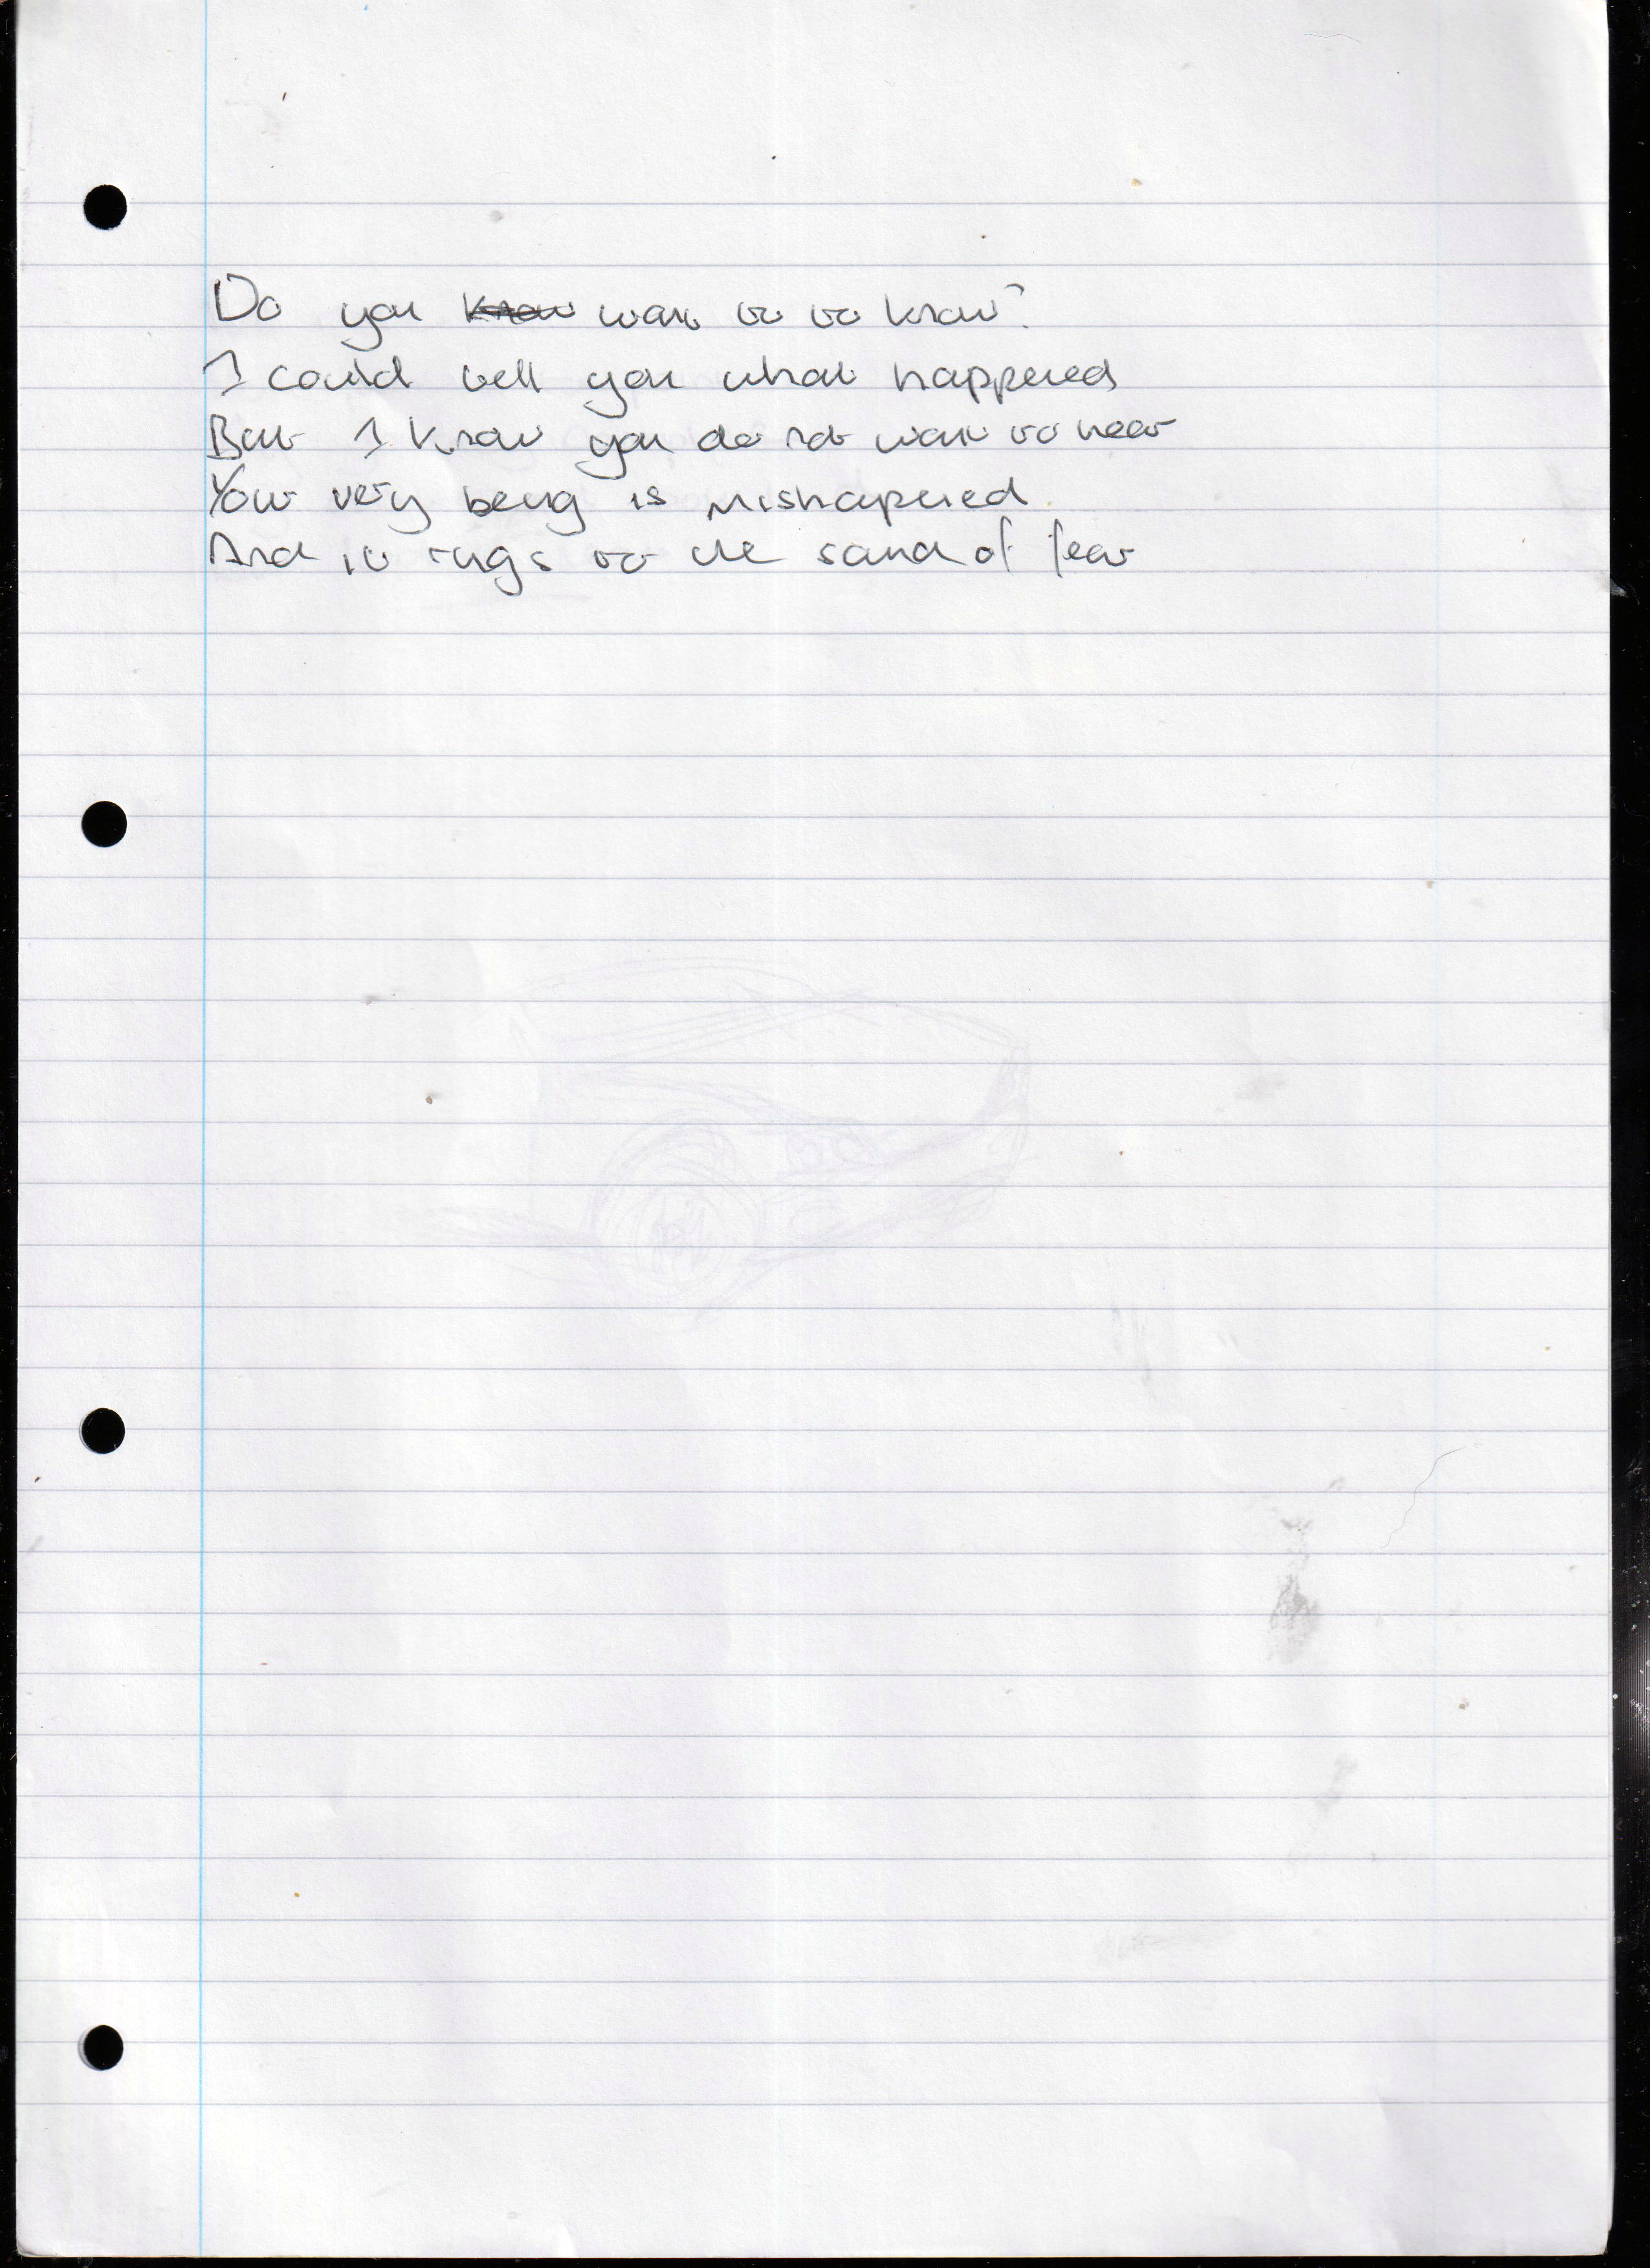 Do you know want to to know?
I could tell you what happened
But I know you do not want to hear
Your very being is mishapened
And it rings to the sound of fear